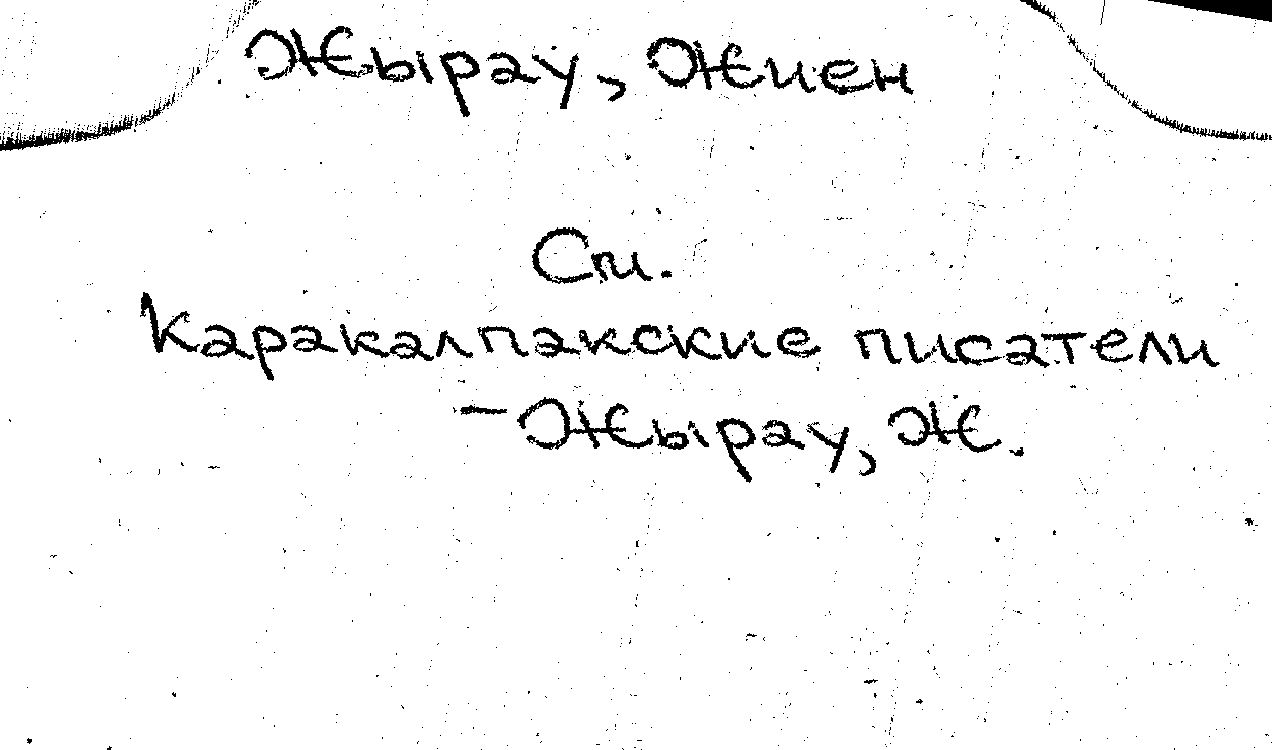 Жырау, Жиен
См.
Каракалпакские писатели
- Жырау, Ж.